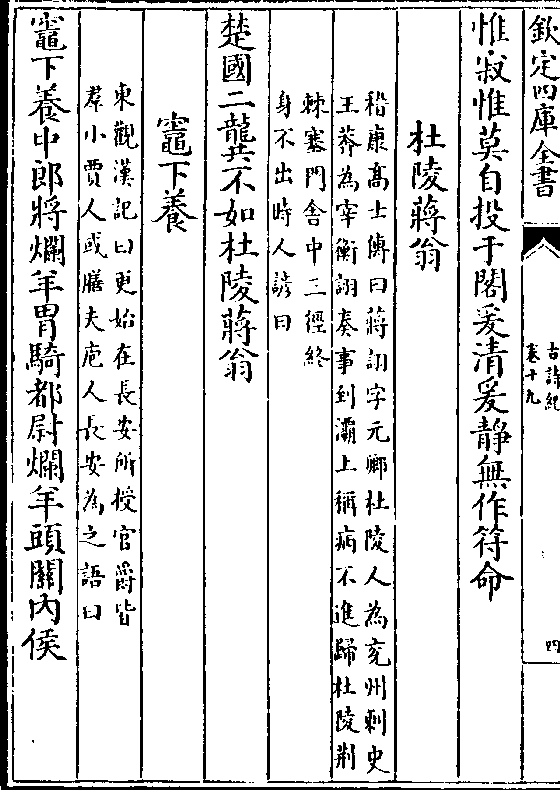 欽定四庫全書
古詩紀
卷十九
四
惟寂惟莫自投于閣爰清爰静無作符命
杜陵蔣翁
嵇康髙士傳曰蔣詡字元卿杜陵人為兖州刺史
王莽為宰衡詡奏事到灞上稱病不進歸杜陵荆
棘塞門舎中三徑終
身不出時人諺曰
楚國二龔不如杜陵蔣翁
竈下養
東觀漢記曰更始在長安所授官爵皆
羣小賈人或膳夫庖人長安為之語曰
竈下養中郎將爛羊胃騎都尉爛羊頭關内侯